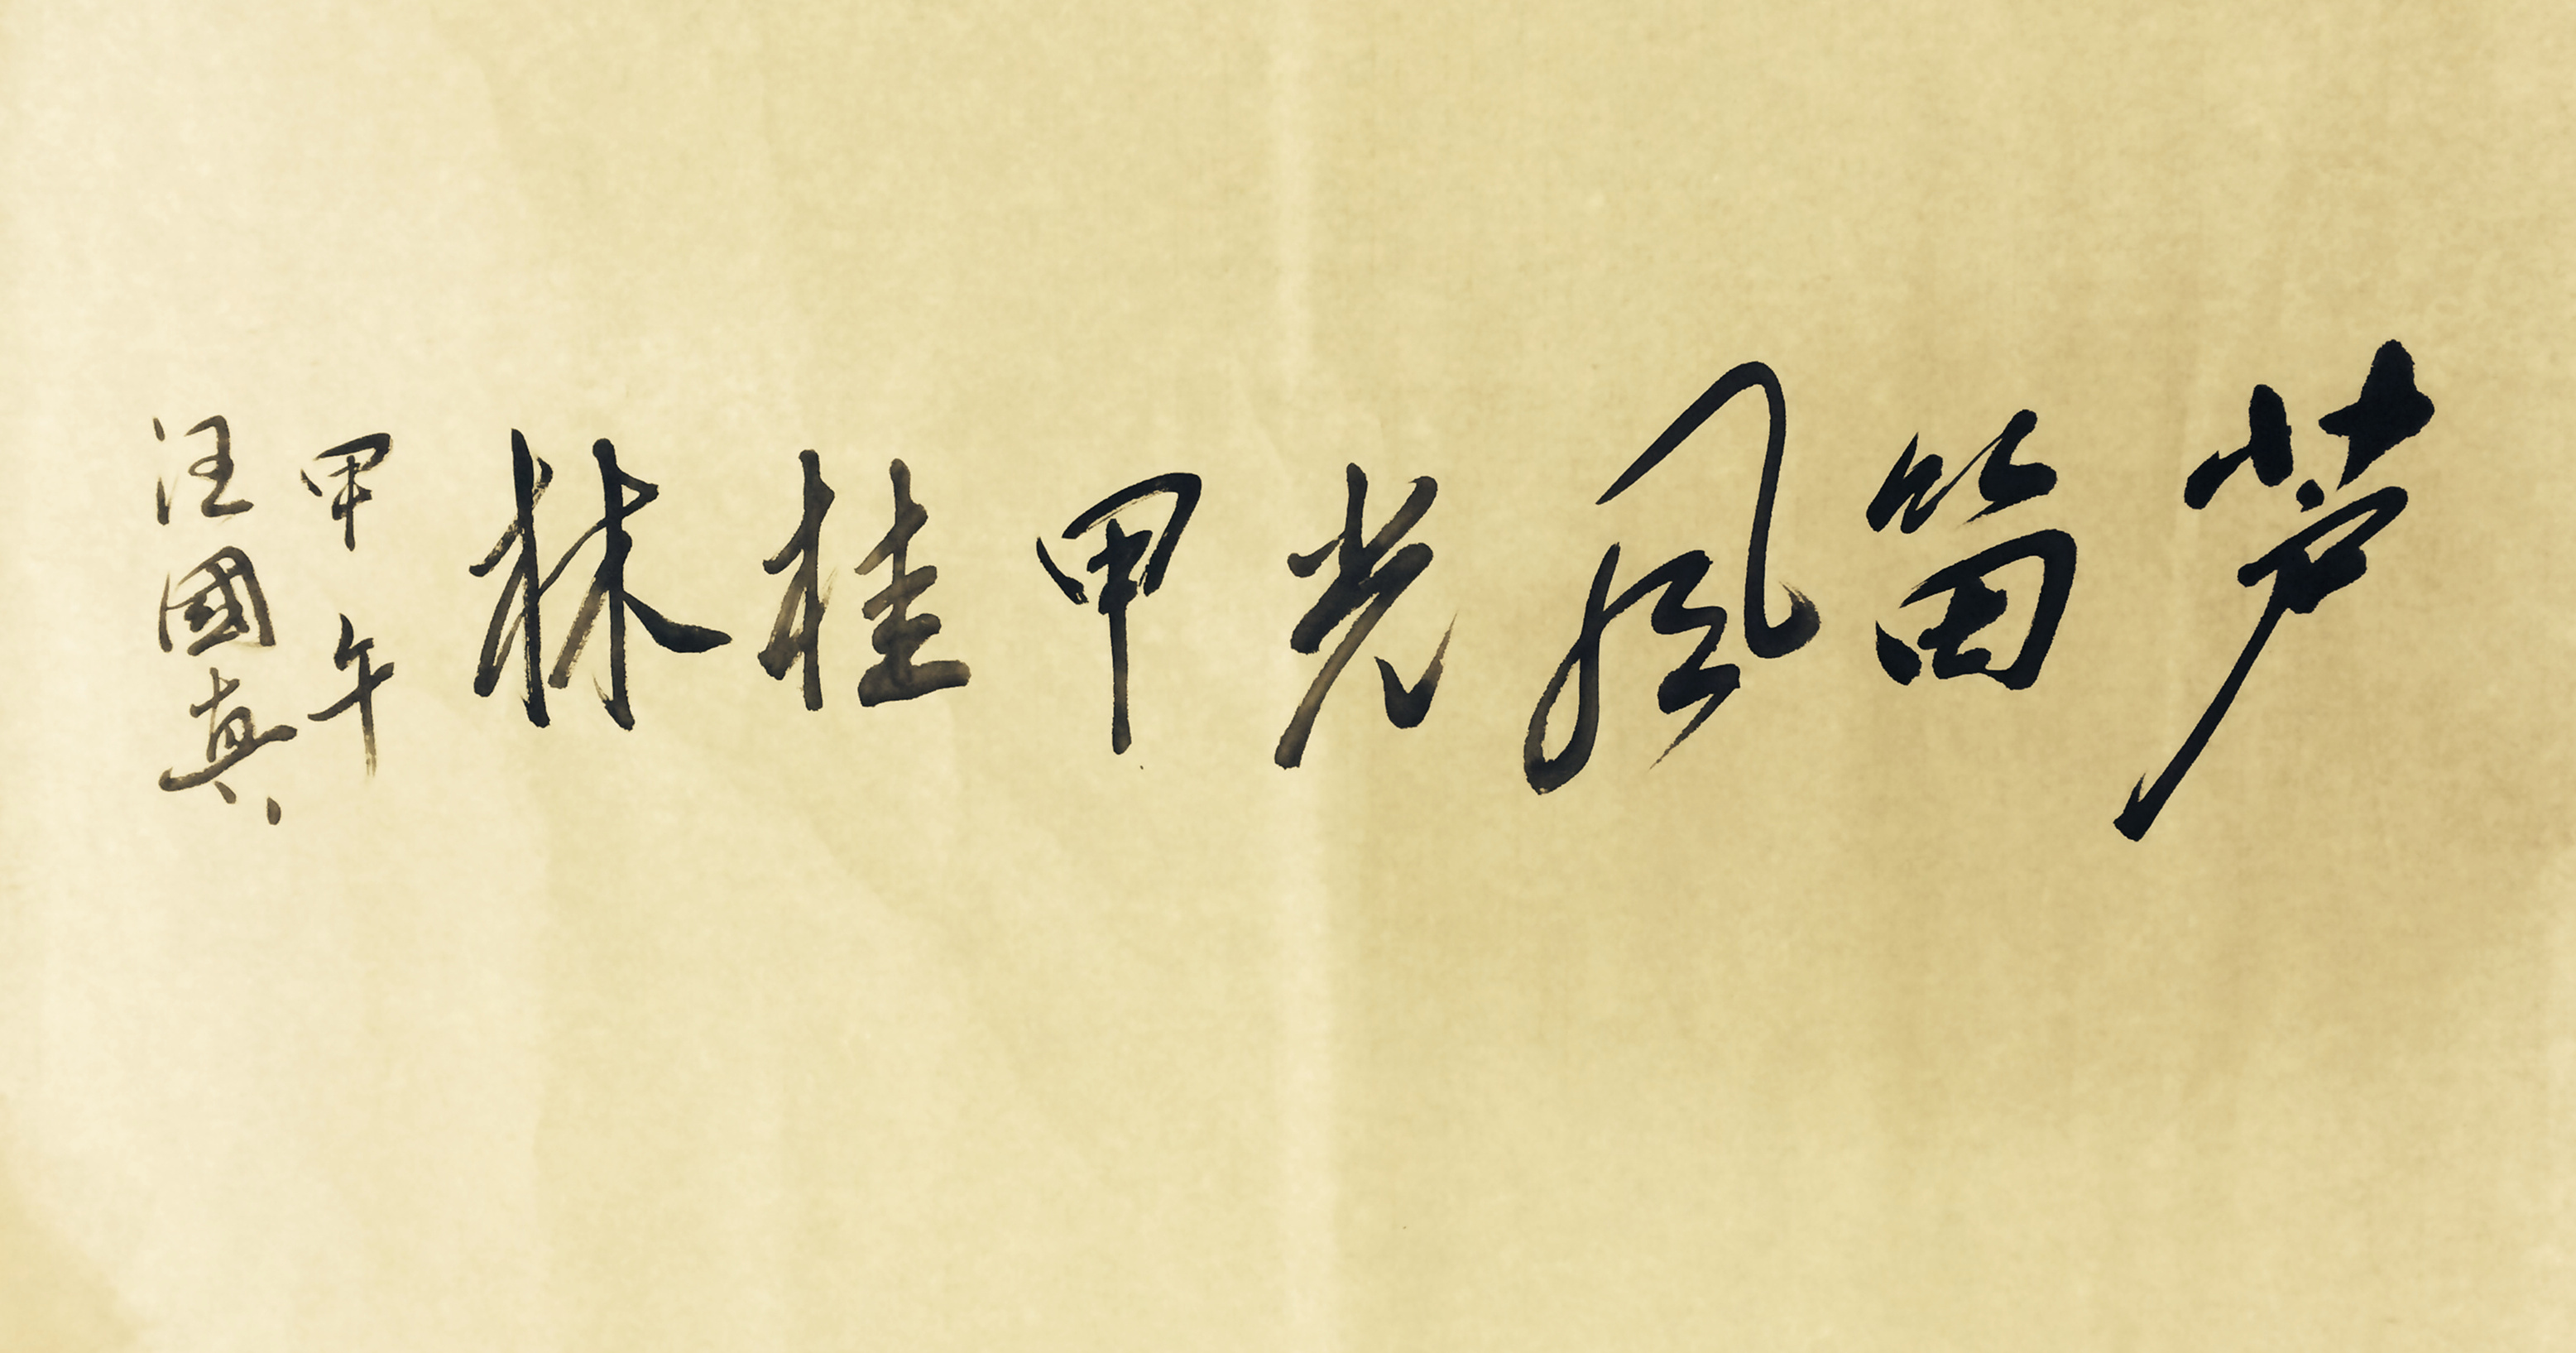 芦笛風光甲桂林
甲午
汪國真